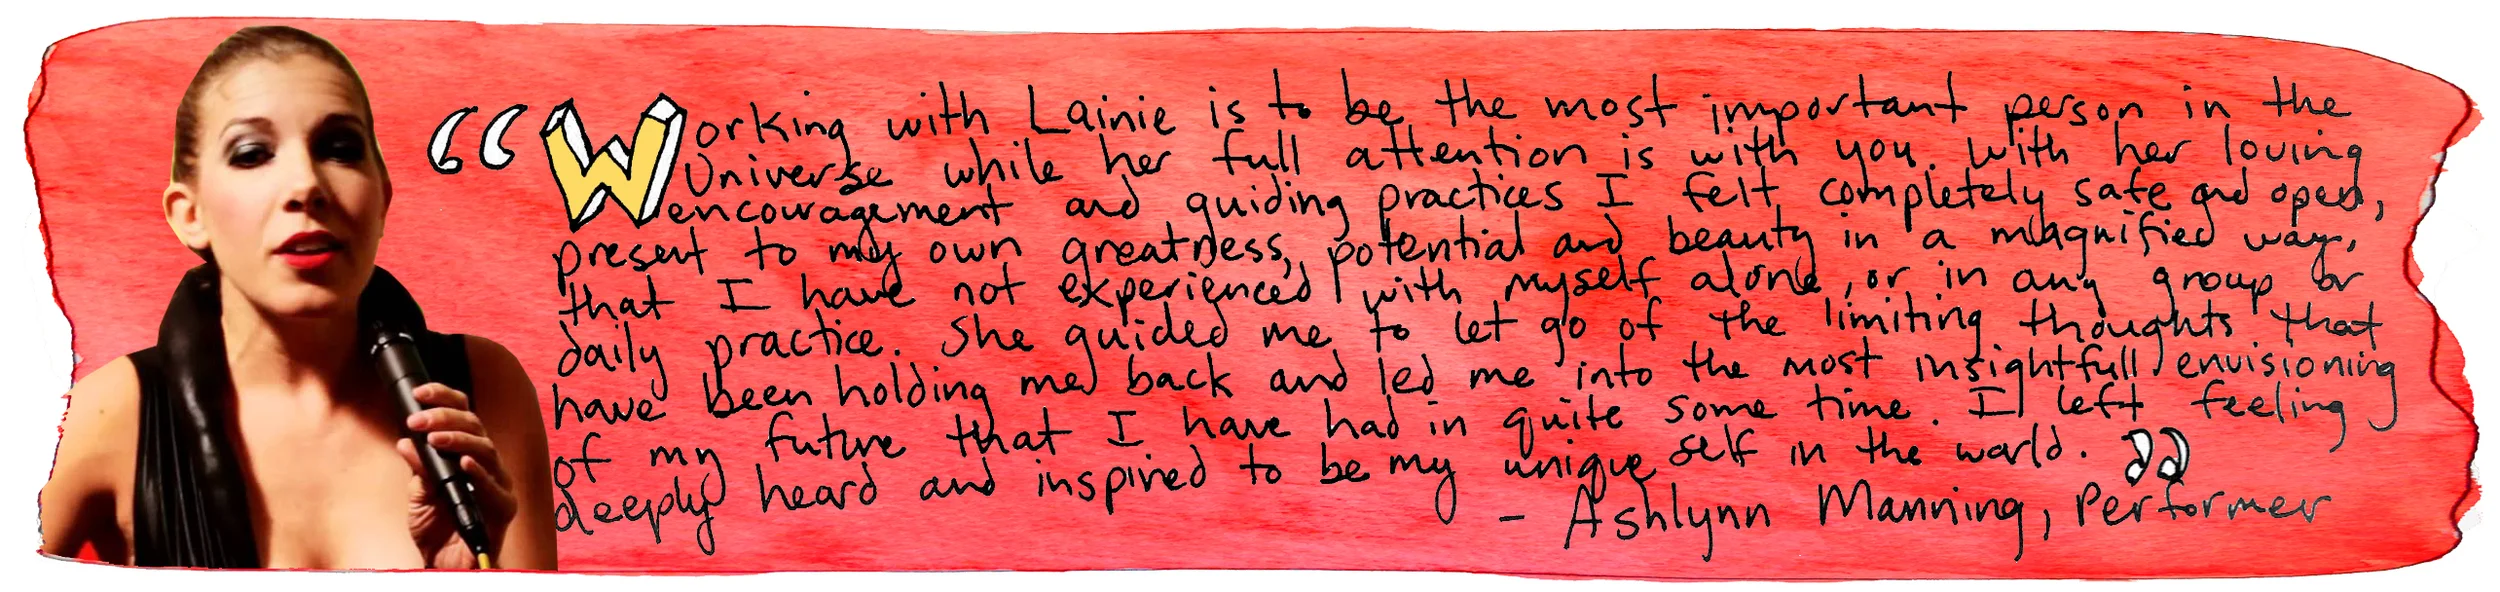 “Working with Lainie is to be the most important person in the
Universe while her full attention is with you. With her loving
encouragement and guiding practices I felt completely safe and open,
present to my own greatness, potential and beauty in a magnified way,
that I have not experienced with myself alone, or in any group or
daily practice. She guided me to let go of the limiting thoughts that
have been holding me back and led me into the most insightfull envisioning
of my future that I have had in quite some time. I left feeling
deeply heard and inspired to be my unique self in the world.”
- Ashlynn Manning, Performer